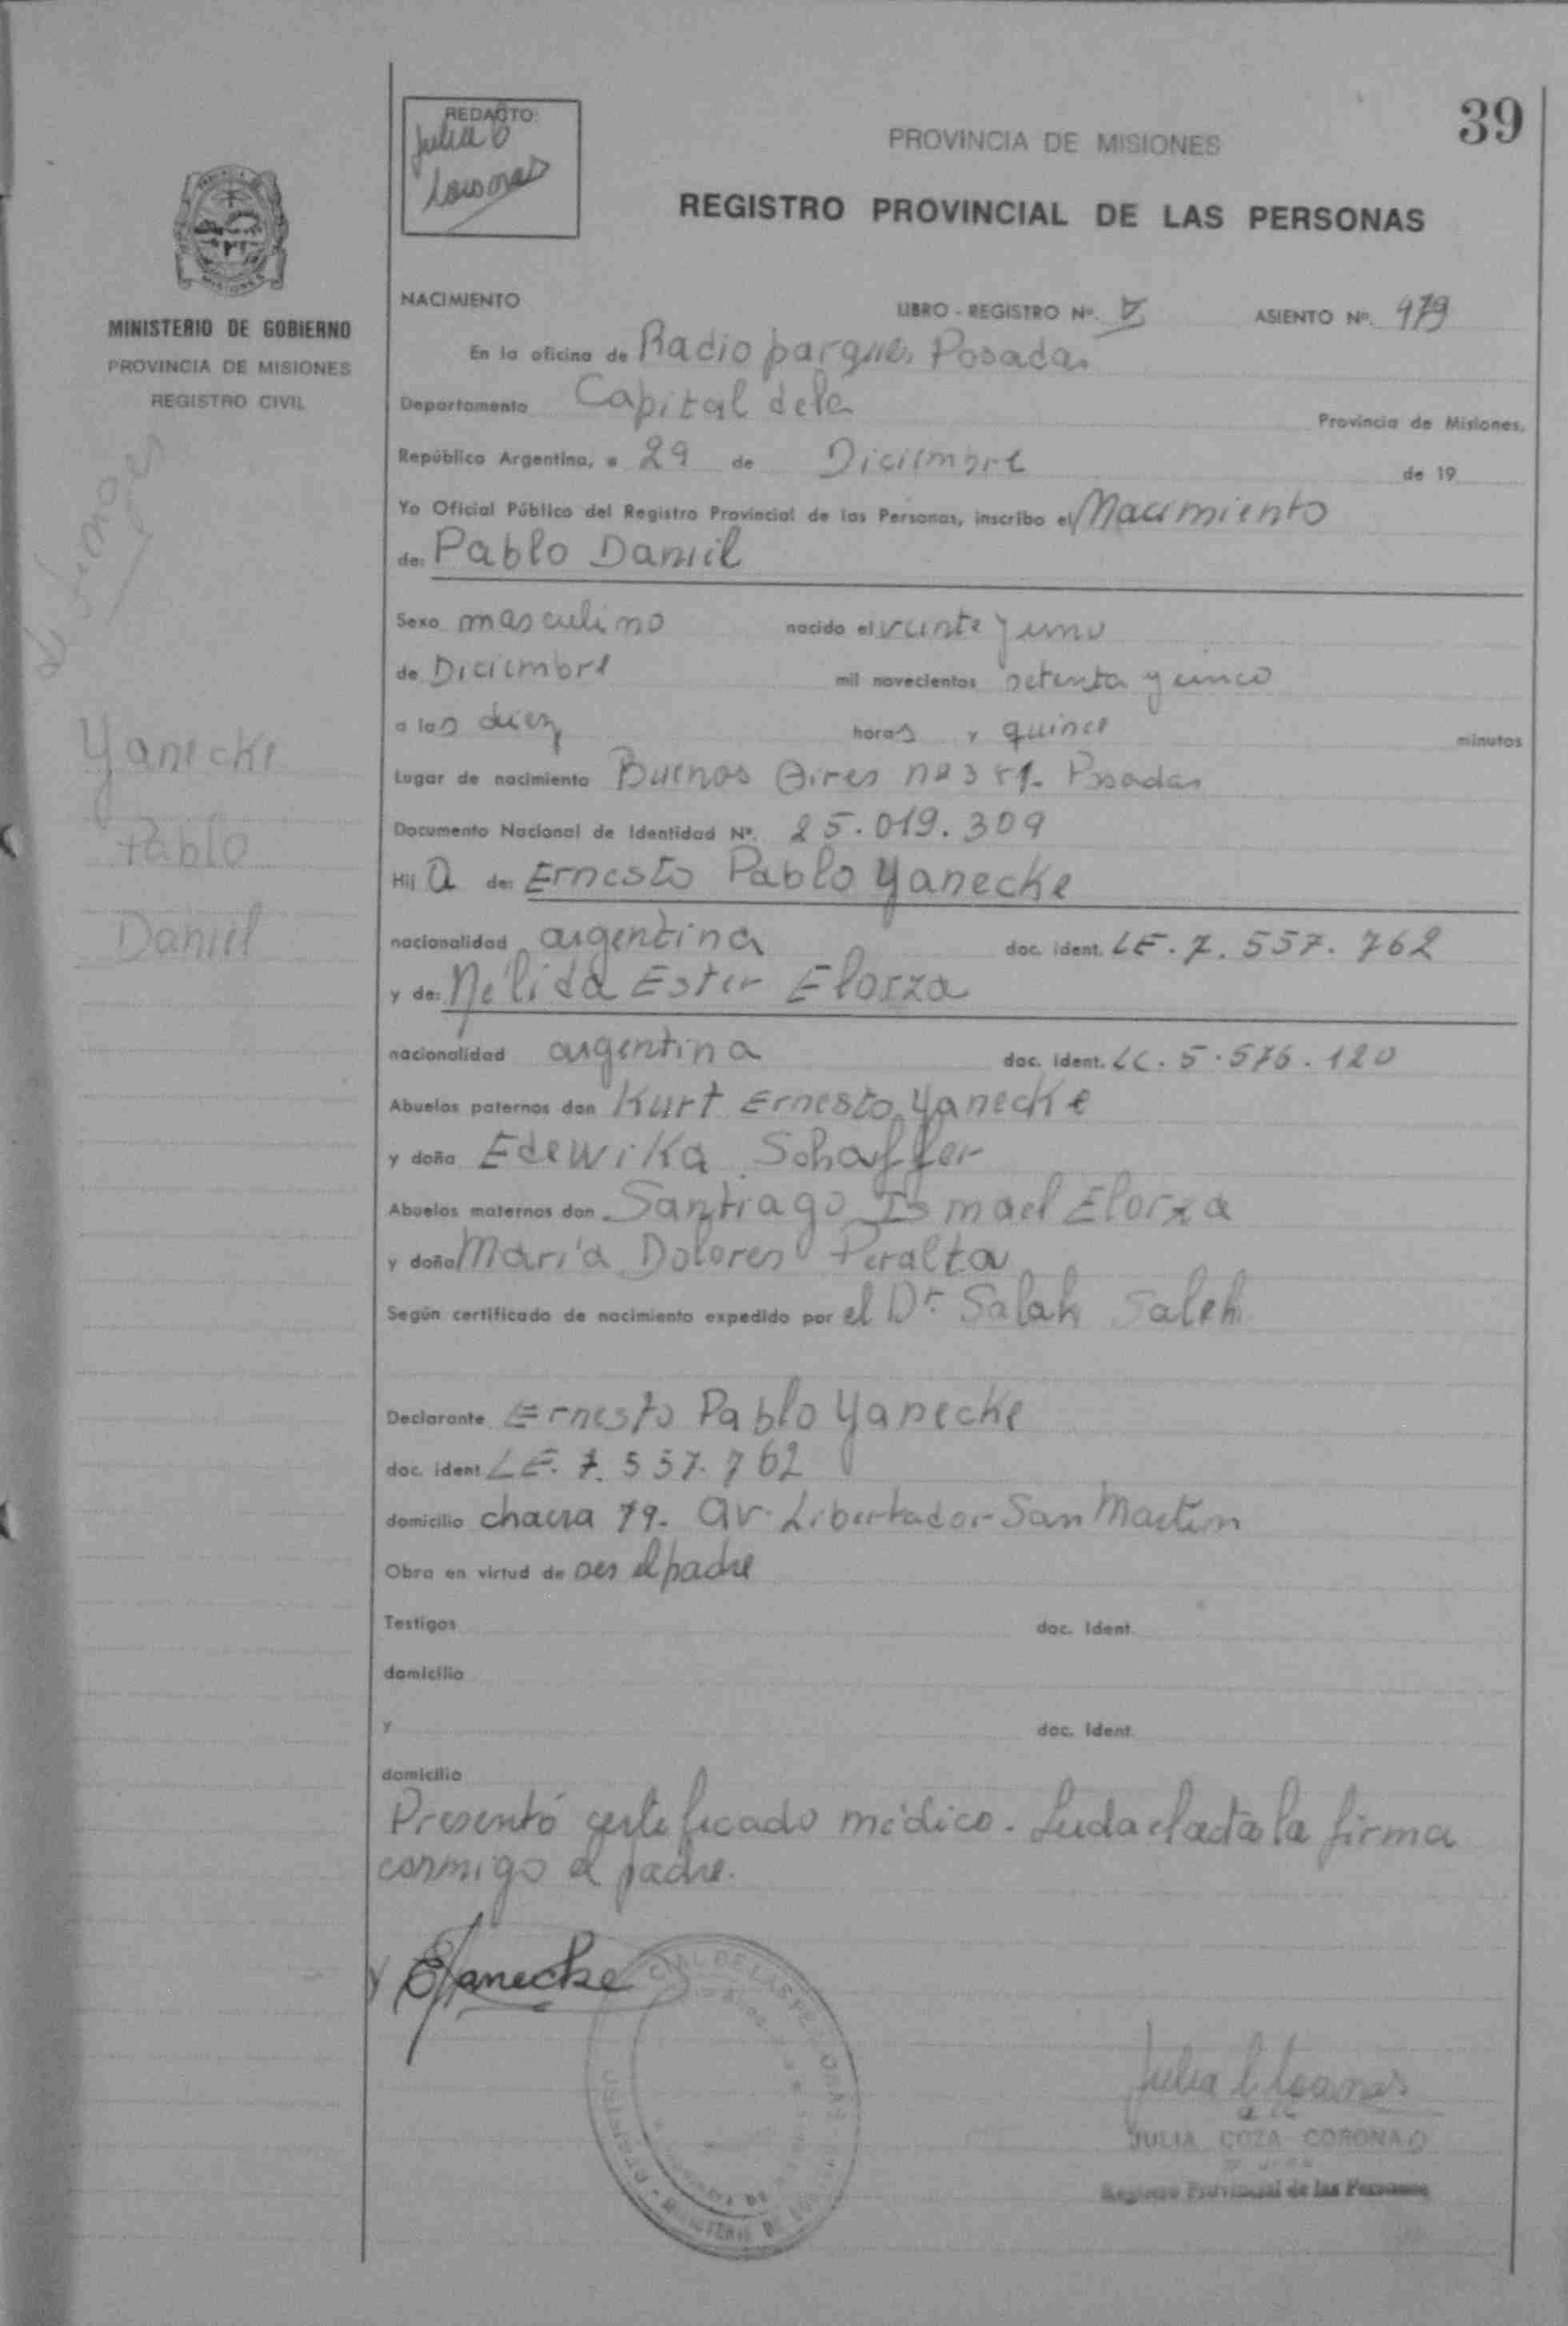 39
REDACTO:
Julia
PROVINCIA DE MISIONES
REGISTRO PROVINCIAL DE LAS PERSONAS
MINISTERIO DE GOBIERNO
PROVINCIA DE MISIONES
REGISTRO CIVIL
NACIMIENTO LIBRO - REGISTRO Nº. V ASIENTO Nº. 979
En la oficina de Radio parques Posadas
Departamento Capital de la Provincia de Misiones,
República Argentina, a 29 de Diciembre de 19
Yo Oficial Público del Registro Provincial de las Personas, inscribo el Nacimiento
de: Pablo Daniel
Sexo masculino nacido el veinte y uno
de Diciembre mil novecientos setenta y cinco
a las diez horas y quince minutos
Yanecke
Pablo
Daniel
Lugar de nacimiento Buenos Aires nº Posadas
Documento Nacional de Identidad Nº. 25.019.309
Hij o de: Ernesto Pablo Yanecke
nacionalidad argentina doc. ident. LE. 7. 557. 762
y de: Nélida Ester Elorza
nacionalidad argentina doc. ident. LC. 5.576.120
Abuelos paternos don Kurt Ernesto Yanecke
y doña Edewika Schaffer
Abuelos maternos don Santiago Ismael Elorza
y doña María Dolores Peralta
Según certificado de nacimiento expedido por el Dr. Salah Saleh
Declarante Ernesto Pablo Yanecke
doc. ident LE. 7. 557. 762
domicilio chacra 79. av. Libertador San Martín
Obra en virtud de ser el padre
Testigos doc. ident.
domicilio
y doc. ident.
domicilio
Presentó certificado médico. Leida el acta la firma
conmigo el padre.
EYanecke
JULIA COZA CORONAO
Registro Provincial de las Personas